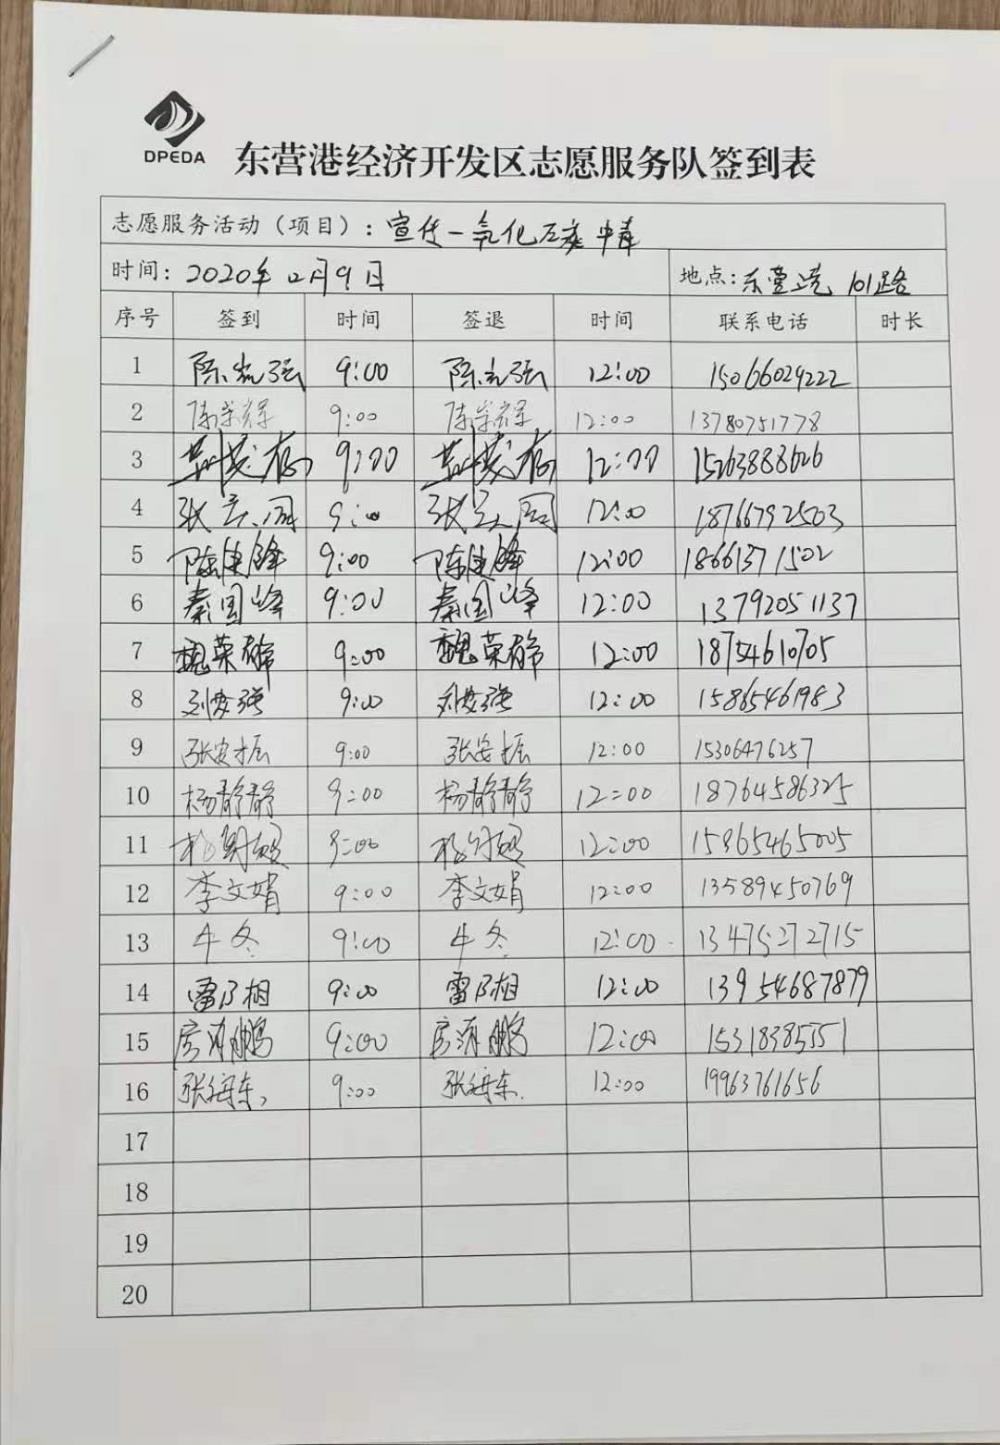 DPEDA
东营港经济开发区志愿服务队签到表
志愿服务活动（项目）：宣传一氧化碳中毒
时间：2020年2月9日 地点：东营港 101路
序号 签到 时间 签退 时间 联系电话 时长
1 陈 强 9:00 陈 强 12:00 15066029222
2 陈荣辉 9:00 陈荣辉 12:00 13780751778
3 9:00 12:00 15263888626
4 张 周 9:00 张 周 12:00 18766792503
5 陈建峰 9:00 陈建峰 12:00 18661371502
6 秦国峰 9:00 秦国峰 12:00 13792051137
7 魏荣 9:00 魏荣 12:00 18754610705
8 刘 强 9:00 刘 强 12:00 15865461983
9 张安振 9:00 张安振 12:00 15306476257
10 杨静静 9:00 杨静静 12:00 18764586325
11 9:00 12:00 15865465005
12 李文娟 9:00 李文娟 12:00 13589450769
13 牛冬 9:00 牛冬 12:00 13475272715
14 雷乃相 9:00 雷乃相 12:00 13954687879
15 房海鹏 9:00 房海鹏 12:00 15318385551
16 张海东 9:00 张海东 12:00 19963761656
17
18
19
20